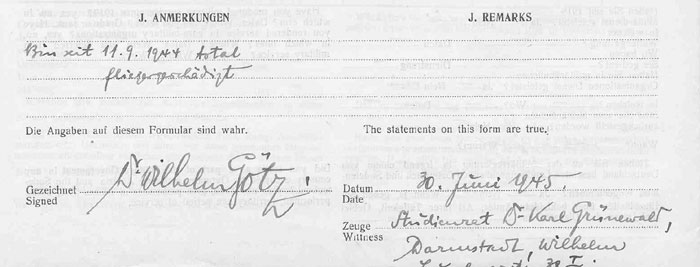 J. ANMERKUNGEN
J. REMARKS
Bin seit 11.9.1944 total
fliegergeschädigt
Die Angaben auf diesem Formular sind wahr.
The statements on this form are true.
Gezeichnet
Signed
Dr. Wilhelm Götz
Datum
Date
30. Juni 1945.
Zeuge
Wittness
Studienrat Dr. Karl Grünewald,
Darmstadt, Wilhelm